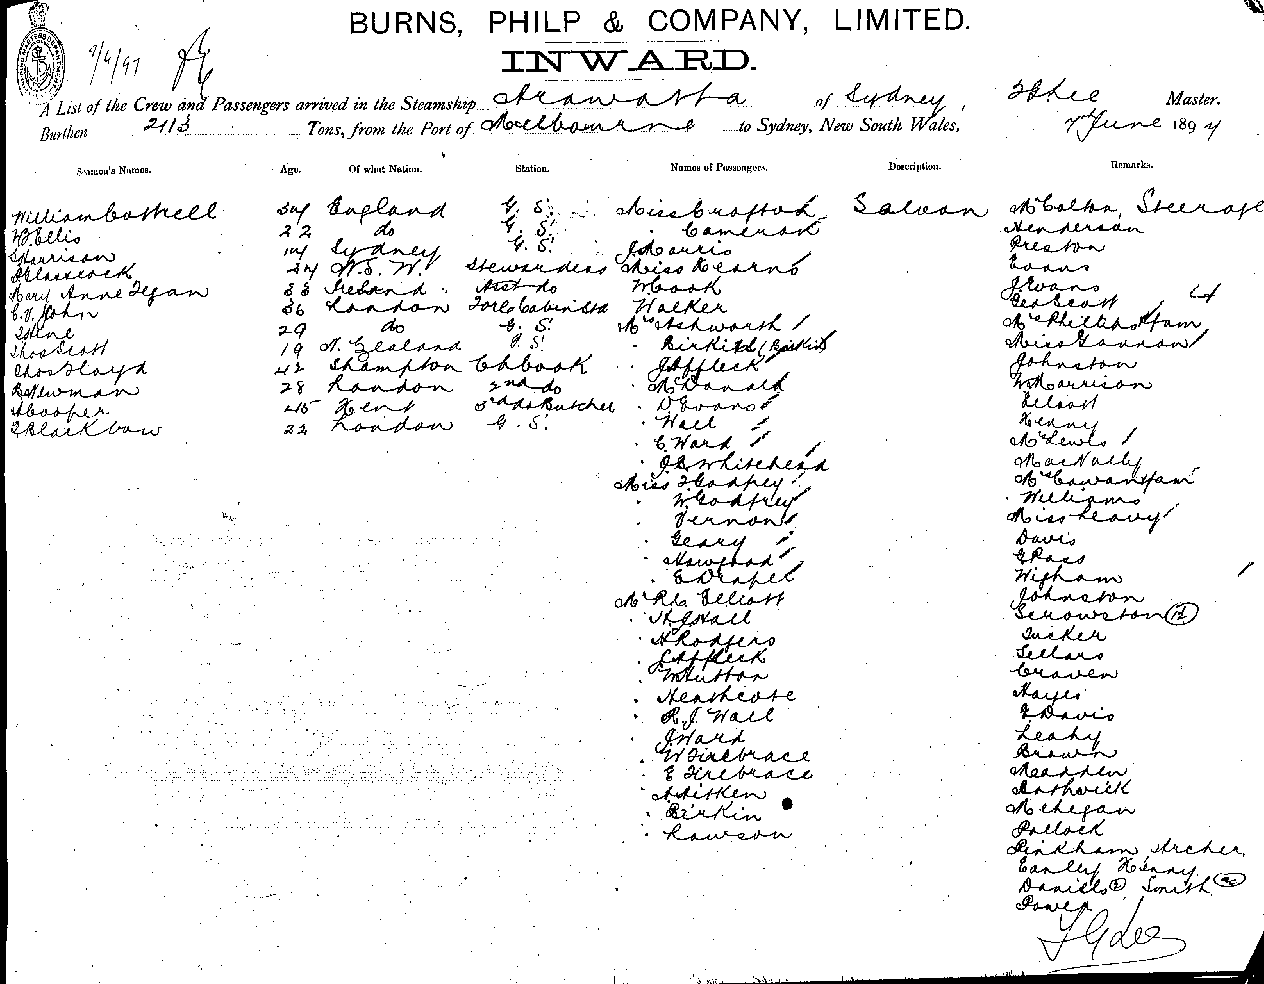 BURNS, PHILP & COMPANY, LIMITED.
INWARD.
A List of the Crew and Passengers arrived in the Steamship Arawatta of Sydney, Master.
Burthen 2113 Tons, from the Port of Melbourne to Sydney, New South Wales, 7 June 1897
Seamen's Names. Age. Of what Nation. Station. Names of Passengers. Description. Remarks.
William Cottrell 34 England G. S. Miss Crofton Saloon Mr Colton, Steerage
W Ellis 22 do G. S. " Cameron Henderson
S Harrison Sydney G. S. J Harris Preston
34 N. S. W. Stewardess Miss Kearns Evans
Mary Anne Fegan 33 Ireland Asst do W Cook J Evans 4
C. V. John 36 London Fore Cabin Std Walker Geo Scott
29 do G. S. Mrs Ashworth Mrs Phillips & fam
Thos Scott 19 N. Zealand G. S. " Birkitt (Birkin) Miss Gannon
Chas Lloyd 42 Shampton Ch Cook J Affleck Johnston
B Newman 28 London 2nd do McDonald W Harrison
A Cooper 45 Kent 3rd do Butcher " D Evans
22 London G. S. " Wall Kenny
" C Ward Mrs Lewis
" J S Whitehead MacNally
Miss F Godfrey Mrs Cowan & fam
" W Godfrey Williams
" Vernon Miss Leavy
" Geary Davis
" Hawgood G Ross
" E Draper Wigham
Mr R L Elliott Johnston
" H J Hall
" H Rodgers Tucker
" J Affleck Sellars
" W Hutton Craven
" Heathcote Hayes
" R. J. Wall E Davis
" J Ward Leahy
" W Firebrace Brown
" E Firebrace Madden
" A Aitken Bothwick
" Birkin Mehegan
" Lawson Pollock
Pinkham Archer
Earley Kenny
Daniels Smith
Power